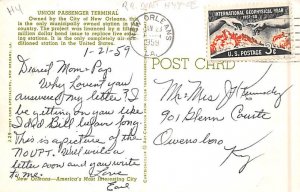 UNION PASSENGER TERMINAL
Owned by the City of New Orleans, this
is the only municipally owned station in the
country. The project was financed by a
million dollar bond issue to have five
stations. It is the only completely air-
ditioned station in the United States.
1-21-59
Dearest Mom & Pop
Why haven't you
answered my letter? I'll
be getting on you like
I did Bill before long.
This is a picture of the
NOUPT. Will write a
letter soon and you write
to me. Love
Earl
New Orleans—America's Most Interesting City
ORLEANS
INTERNATIONAL GEOPHYSICAL YEAR
1957-58
U.S. POSTAGE 3¢
POST CARD
Mr & Mrs J
901 Glenn Courte
Owensboro
Ky